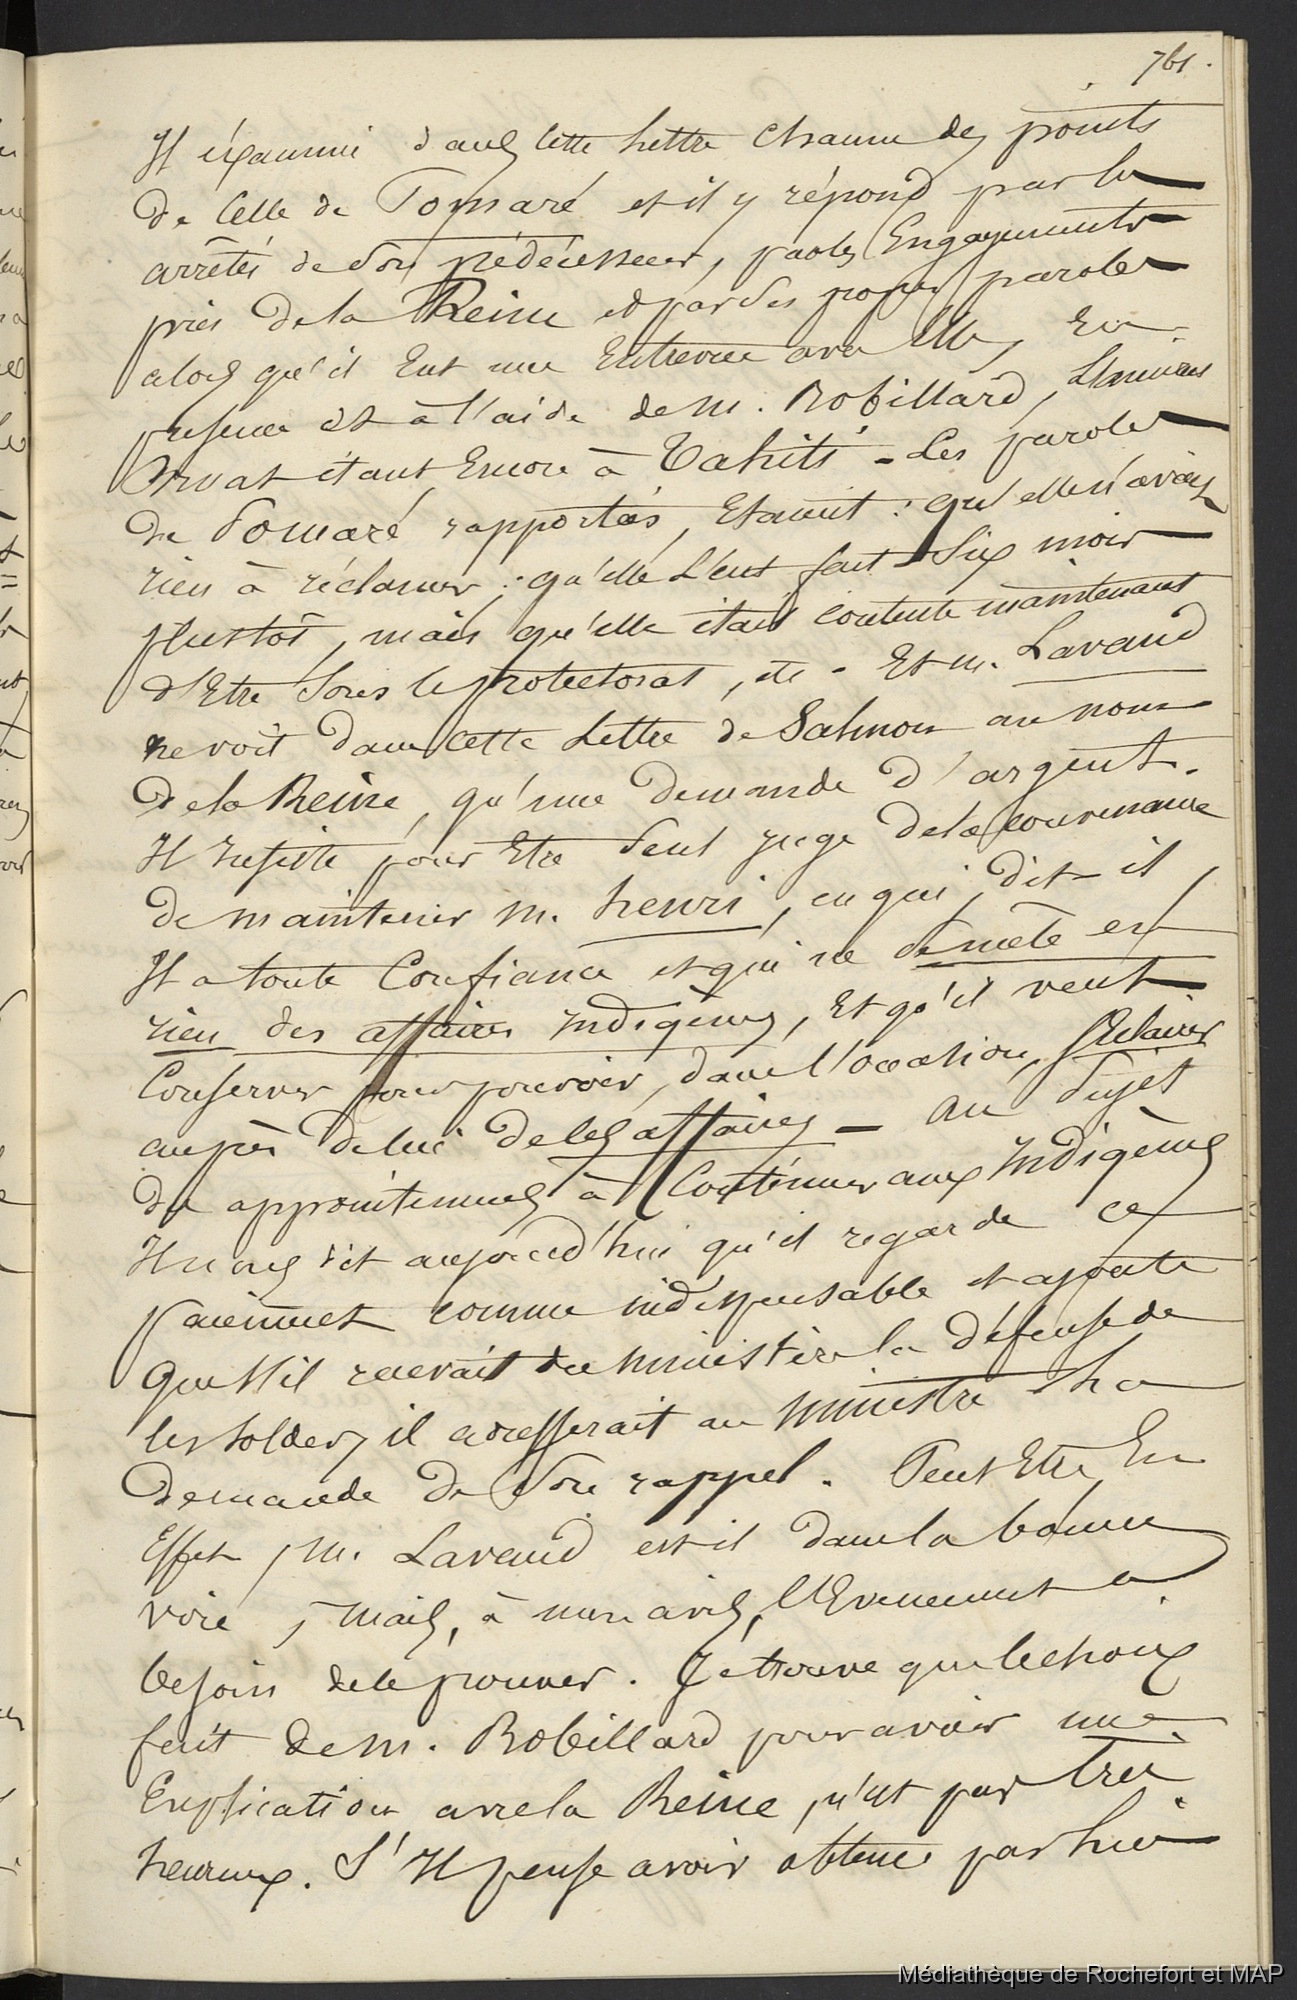 761.
Il éxamine dans cette lettre chacun des points
de celle de Pomaré et il y répond par les
arrêtés de son prédécesseur, par les Engagements
pris de la Reine et par ses propres paroles
alors qu'il Eut une Entrevue avec Elle, En
présence et à l'aide de M. Robillard,
Orsmond étant Encore à Tahiti - Les paroles
de Pomaré rapportées, Etaient : qu'elle n'avait
rien à réclamer ; qu'elle l'eut fait six mois
plustôt, mais qu'elle était contente maintenant
d'Etre sous le protectorat, etc - Et M. Lavaud
ne voit dans cette Lettre de Salmon au nom
de la Reine, qu'une demande d'argent.
Il insiste pour Etre seul juge de la convenance
de maintenir M. henri, en qui, dit-il,
Il a toute Confiance et qui ne se mêle en
rien des affaires indigènes, Et qu'il veut
Conserver pour pouvoir, dans l'occasion, s'éclairer
auprès de lui de ces affaires - au sujet
des appointemens à Continuer aux Indigènes
Il nous dit aujourd'hui qu'il regarde ce
paiement comme indispensable et ajoute
que s'il recevait du ministère la défense de
les solder, il adresserait au ministre sa
demande de son rappel. Peut Etre, En
Effet, M. Lavaud est il dans la bonne
voie, mais, à mon avis, l'Evenement a
besoin de le prouver. Je trouve que le choix
fait de M. Robillard pour avoir une
Explication avec la Reine, n'est pas très
heureux. S'Il pense avoir obtenu par lui
Médiathèque de Rochefort et MAP